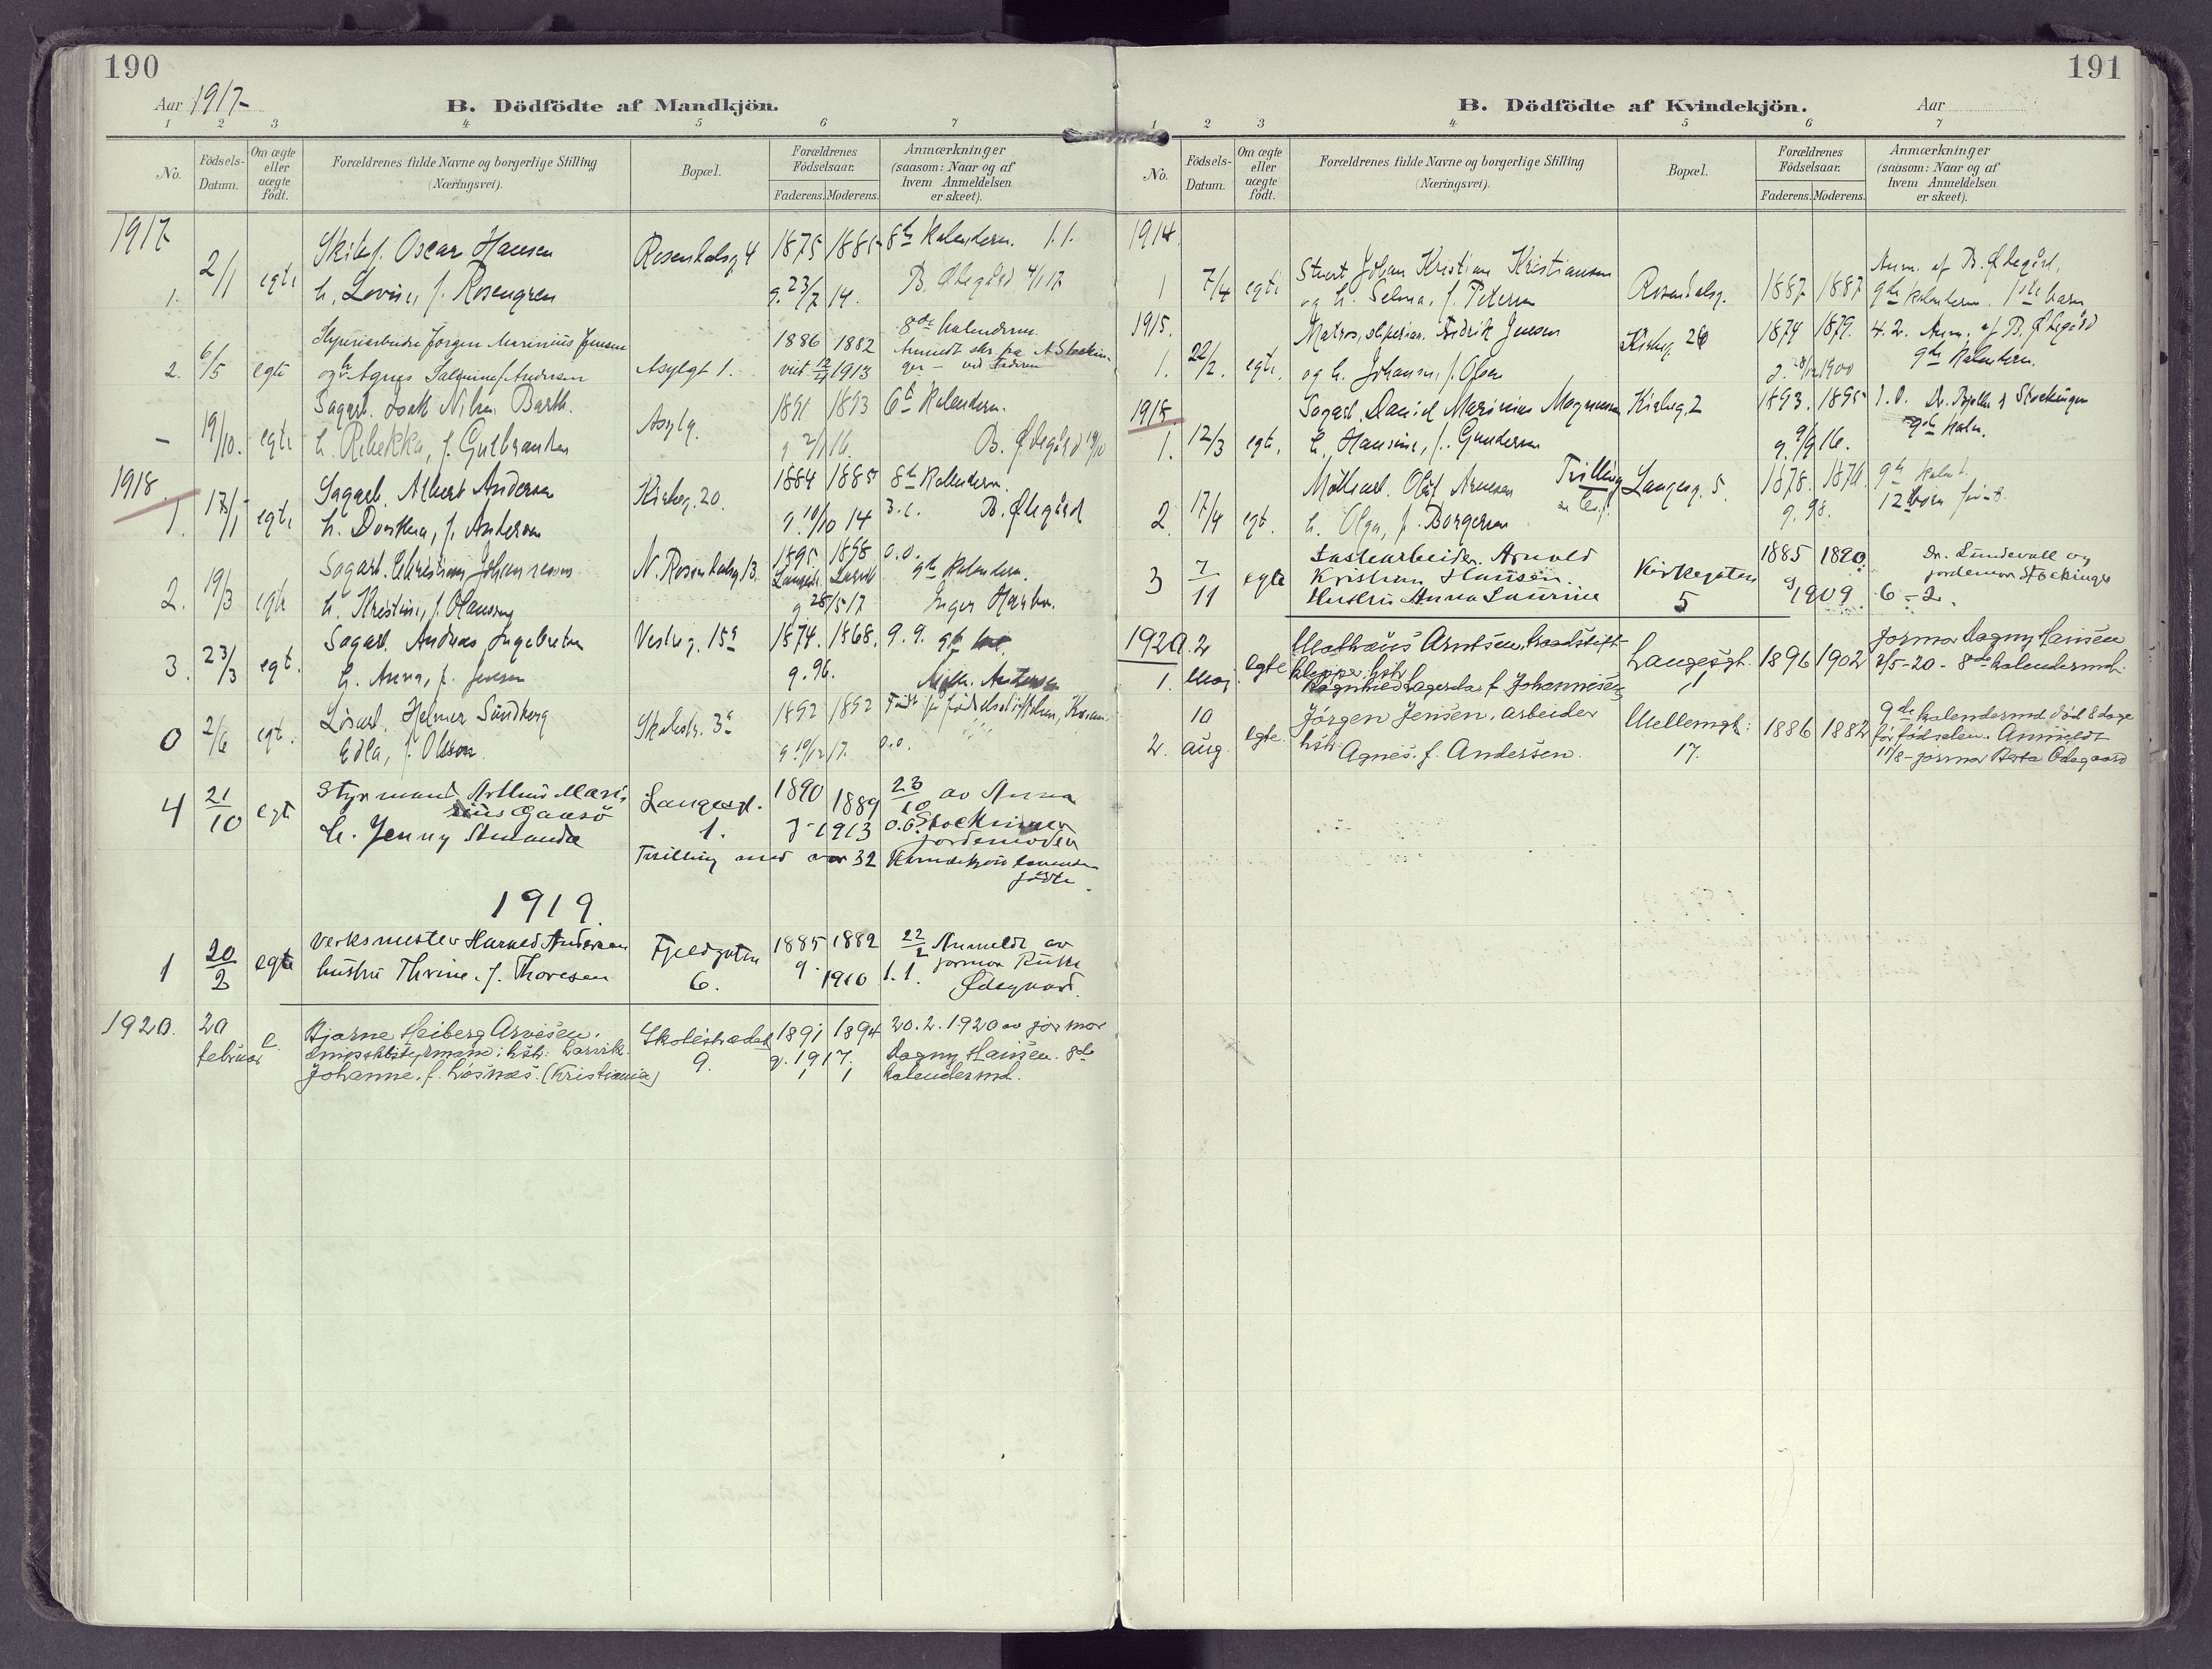 190
Aar 1917
B. Dödfödte af Mandkjön.
1 2 3 4 5 6 7
No.
Födsels-
Datum.
Om ægte
eller
uægte
født.
Forældrenes fulde Navne og borgerlige Stilling
(Næringsvei).
Bopæl.
Forældrenes
Födselsaar.
Faderens. Moderens.
Anmærkninger
(saasom: Naar og af
hvem Anmeldelsen
er skeet).
1917
1. 2/1 egte
Oscar Hansen
h. Lovise, f. Rosengren
Rosendalsg 4
1875
g. 23/7 14.
8de Kalenderm. 1.1.
B. Ødegård 4/1 17
2. 6/5 egte
Jörgen Marinius Jensen
og h Agnes f. Andersen
Asylgt 1.
1886 1882
viet 1913
8de kalenderm.
– 19/10. egte
Sagarb. Isak Nilsen Barth.
h. Rebekka, f. Gulbrandsen
Asylg.
1891 1893
6te Kalenderm.
B. Ødegård 19/10
1918
1. 17/1 egte
Sagarb. Albert Andersen
h. Dorthea, f. Andersen
Kirkeg. 20.
1884 1885
g. 10/10 14
8de Kalenderm.
B. Ødegård
2. 19/3 egte
Sagarb. Christian Johannessen
h. Kristine, f. Olaussen
N. Rosendalsg 13.
1895. 1898
g 28/5 17
0.0.
9de Kalenderm.
3. 23/3 egt.
Sagarb. Andreas Ingebretsen
h. Anna, f. Jensen
Vesteg. 15a
1874. 1868.
g. 96.
9. 9.
0 2/6 egt.
Lösarb. Helmer Sundberg
Edla, f. Olsson.
Skolestr. 3a
1892 1892
g 10/12 17.
0.0.
4 21/10 egt.
Styrmand Arthur Mari-
nius Gansö
h. Jenny Amanda
Langesgt.
1.
1890 1889
g 1913
23/10 av Anna
0.0. Stockinger
jordemoder
Tvilling med nr 32 Kvindekjön levende
födte.
1919.
1 20/2 egte
Verksmester Harald Andersen
hustru Thrine. f. Thoresen
Fjeldgaten
6.
1885 1882
g. 1910
22/2 Anmeldt av
jormor Ruth
1.1. Ødegaard.
1920. 20
februar e
Bjarne Heiberg Arvesen.
hstr: Larvik.
Johanne. f. Løsnæs. (Kristiania)
Skolestrædet
9.
1891 1894
g. 1917.
20.2.1920 av jormor
Dagny Hansen. 8de
kalendermd.
191
B. Dödfödte af Kvindekjön.
Aar
1 2 3 4 5 6 7
No.
Födsels-
Datum.
Om ægte
eller
uægte
født.
Forældrenes fulde Navne og borgerlige Stilling
(Næringsvei).
Bopæl.
Forældrenes
Födselsaar.
Faderens. Moderens.
Anmærkninger
(saasom: Naar og af
hvem Anmeldelsen
er skeet).
1914.
1 7/4 egte
Stuert Johan Kristian Kristiansen
og h. Selma, f. Petersen
Rosendalsg.
1887 1887
Anm. af B. Ødegård,
9de kalenderm. 1ste barn
1915.
1. 22/2. egte.
Matros, Fredrik Jensen
og h. Johanne, f. Olsen
Kirkeg. 26
1874 1879.
4.2. Anm. af B. Ødegård
9de Kalenderm.
1918.
1. 12/3 egte,
Sagarb. Daniel Marinius Magnussen
h. Hansine, f. Gundersen
Kirkeg. 2
1893. 1895
g. 9/9 16.
1.0.
9de Kaln.
2. 17/4 egt.
Möllearb. Olaf Arnesen Tvilling
h. Olga, f. Borgersen
Langesg. 5.
1878. 1876.
g. 98.
9de
12 børn
3 7/11 egte
Lastearbeider. Arnold
Kristian Hansen.
Hustru Anna Laurine
Kirkegaten
5
1885 1890.
g 1909
Dr. Lundevall og
jordemor Stockinger
6 – 2.
1920. 2
1. Maj egte
Mathæus Arntsen,
hstr
f Johannesen
Langesgt.
11
1896 1902
Jormor Dagny Hansen
3/5-20 - 8de kalendermd.
10
2. aug. egte.
Jörgen Jensen. arbeider
hstr. Agnes. f. Andersen.
Mellemgt:
17.
1886 1882
9de kalendermd død 8 dage
før fødselen. Anmeldt
11/8 - jormor Berta Ødegaard